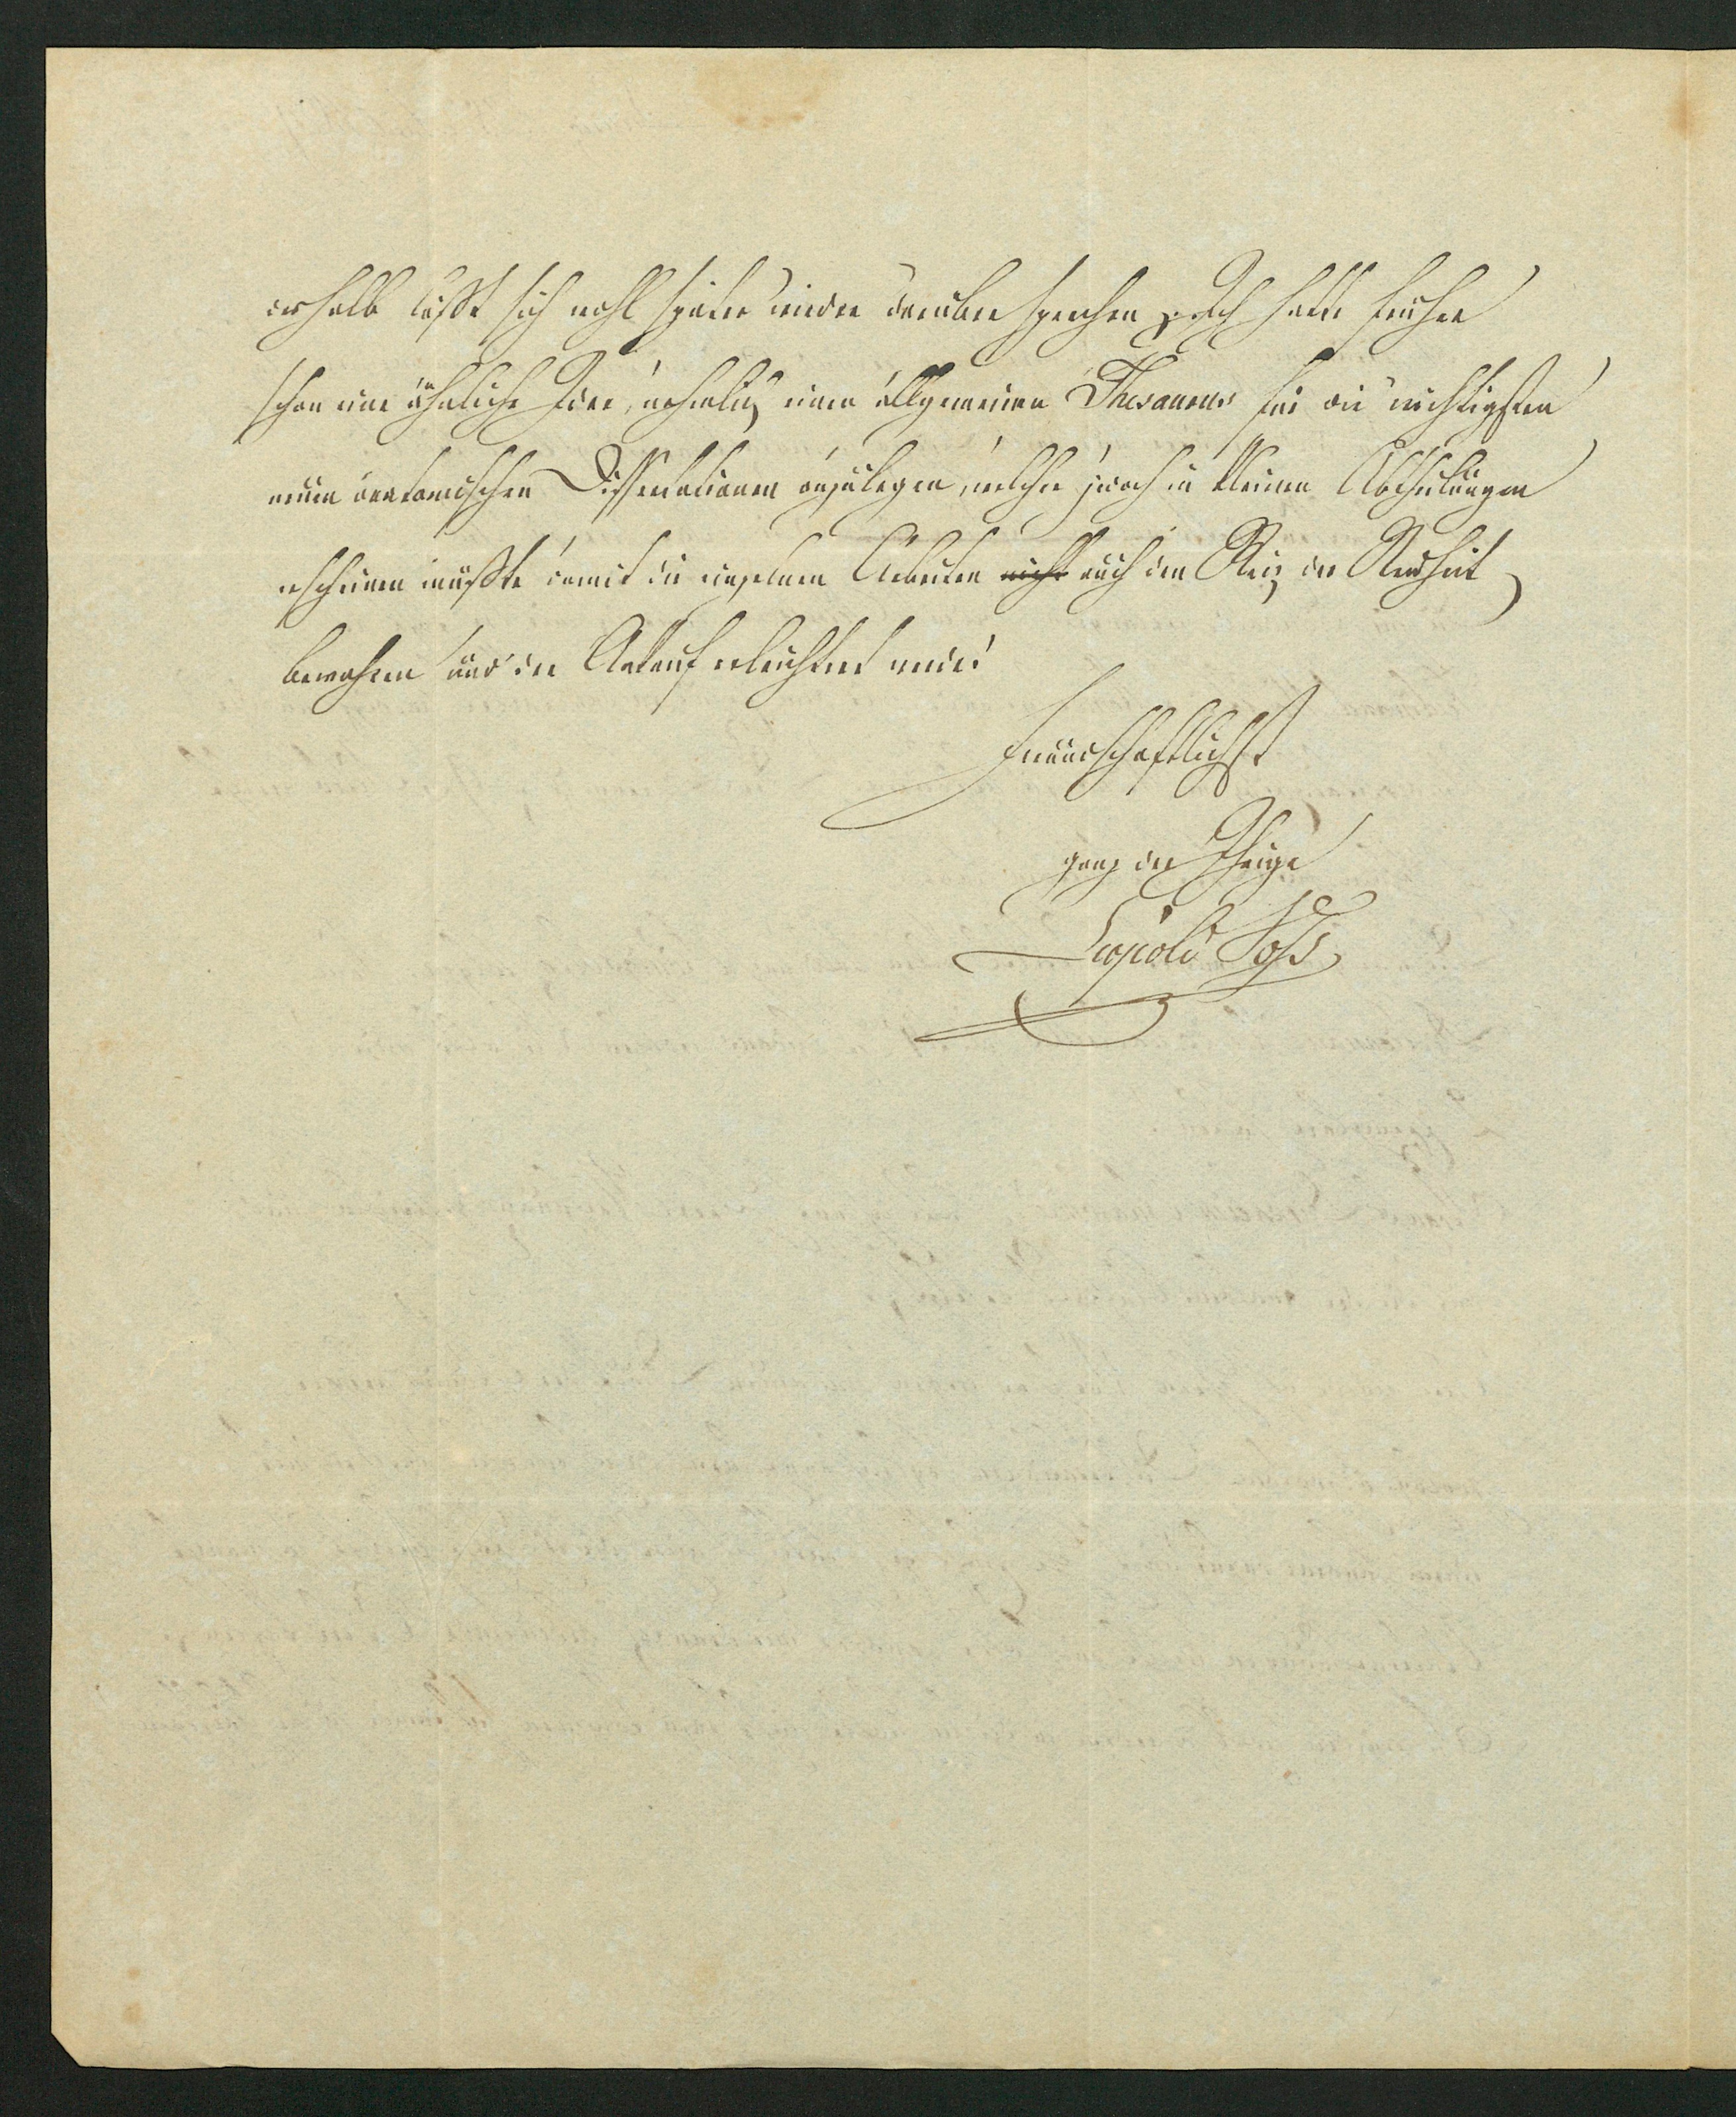 deshalb läßt sich wohl später wieder darüber sprechen. Ich hatte früher
schon eine ähnliche Idee, nehmlich einen allgemeinen Thesaurus für die wichtigsten
neuen anatomischen Dissertationen anzulegen, welcher jedoch in kleinen Abtheilungen
erscheinen müßte damit die einzelnen Arbeiten nicht auch den Reiz der Neuheit
bewahren und der Ankauf erleichtert würde.
Freundschaftlichst
ganz der Ihrige
Leopold Voß